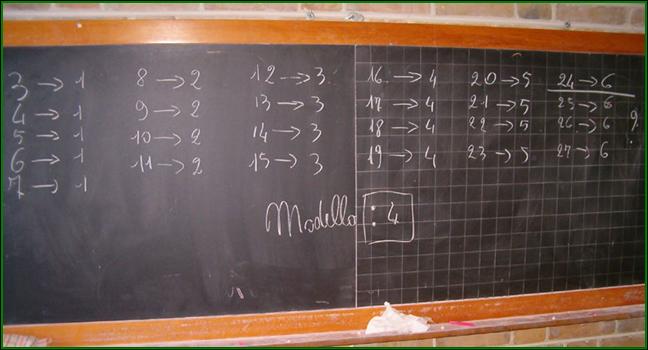 3 → 1
4 → 1
5 → 1
6 → 1
7 → 1
8 → 2
9 → 2
10 → 2
11 → 2
12 → 3
13 → 3
14 → 3
15 → 3
16 → 4
17 → 4
18 → 4
19 → 4
20 → 5
21 → 5
22 → 5
23 → 5
24 → 6
25 → 6
26 → 6
27 → 6
?
Modello : 4